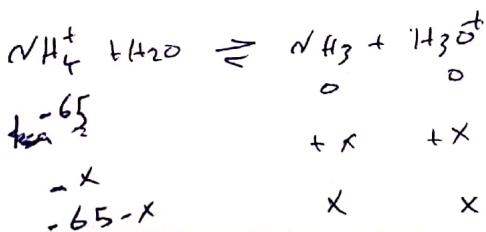 NH4+ + H2O ⇌ NH3 + H3O+
0 0
-65
+x +x
-x
-65-x x x